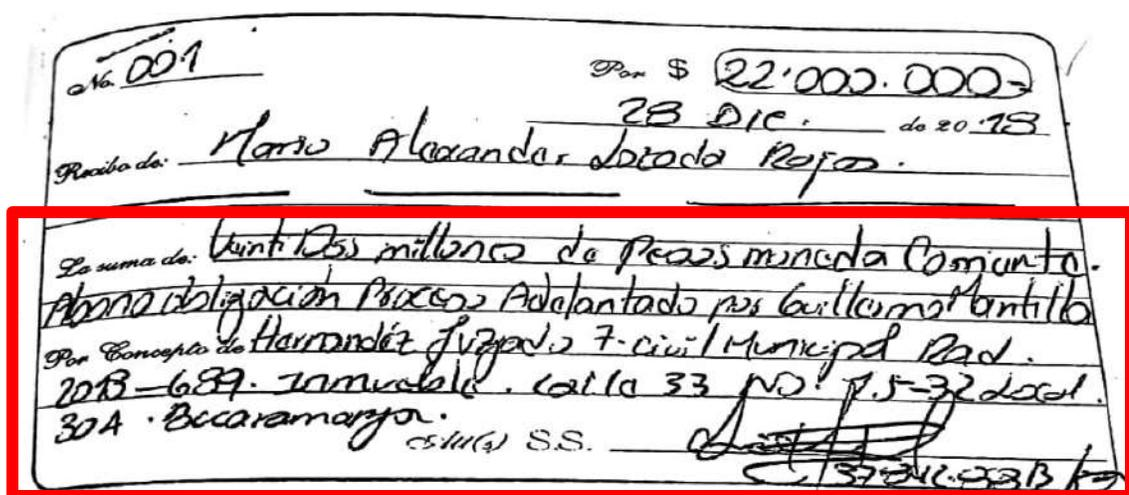 No. 001 Por $ 22'000.000=
28 DIC. de 2018
Recibo de: Mario Alexander Lozada Rojas.
La suma de: Veinti Dós millones de Pesos moneda Corriente.
Abono obligación Proceso Adelantado por Guillermo Mantilla
Por Concepto de Hernandéz Juzgado 7. civil Municipal Rad.
2013-689. Inmueble. Calle 33 NO. 15-32 Local.
304. Bucaramanga.
S.S.